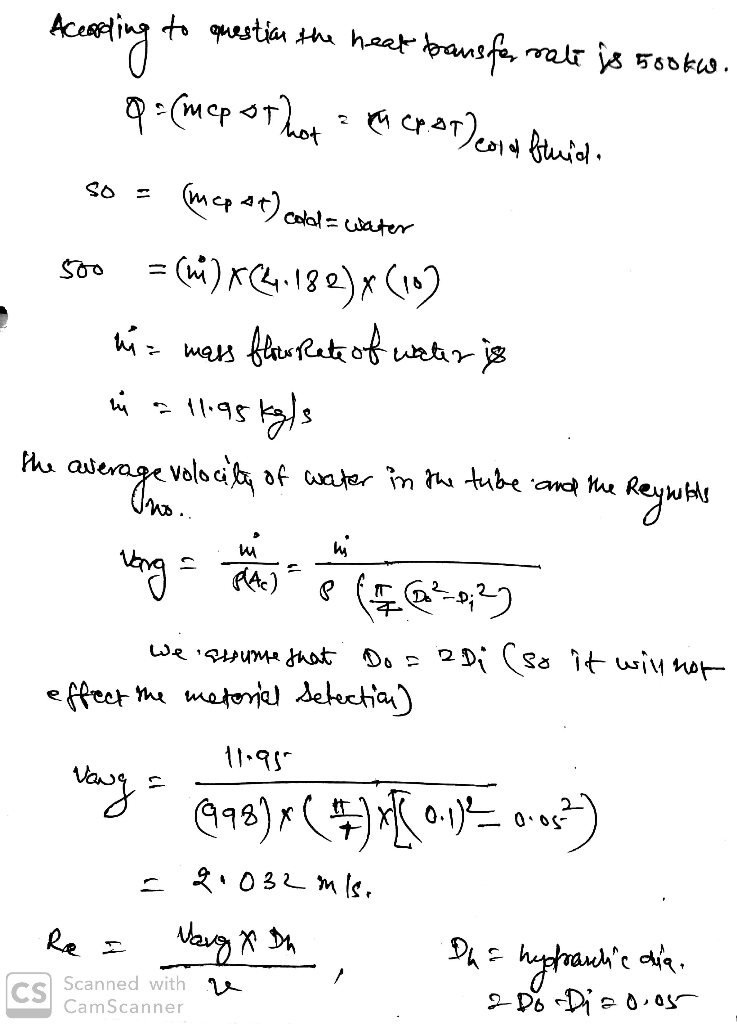 According to question the heat transfer rate is 500kw.
Q = (m cp ΔT)hot = (m cp. ΔT)cold fluid.
so = (m cp Δt) cold = water
500 = (ṁ) x (4.182) x (10)
ṁ = mass flow Rate of water is
ṁ = 11.95 kg/s
the average volocity of water in the tube and the Reynolds
no..
Vavg = ṁ / ρ(Ac) = ṁ / ρ (π/4 (Do² - Di²)
we assume that Do = 2Di (so it will not
effect the material selection)
Vavg = 11.95 / (998) x (π/4) x [(0.1)² - 0.05²)
= 2.032 m/s.
Re = Vavg x Dh / ν , Dh = hydraulic dia.
= Do - Di = 0.05
CS Scanned with
CamScanner